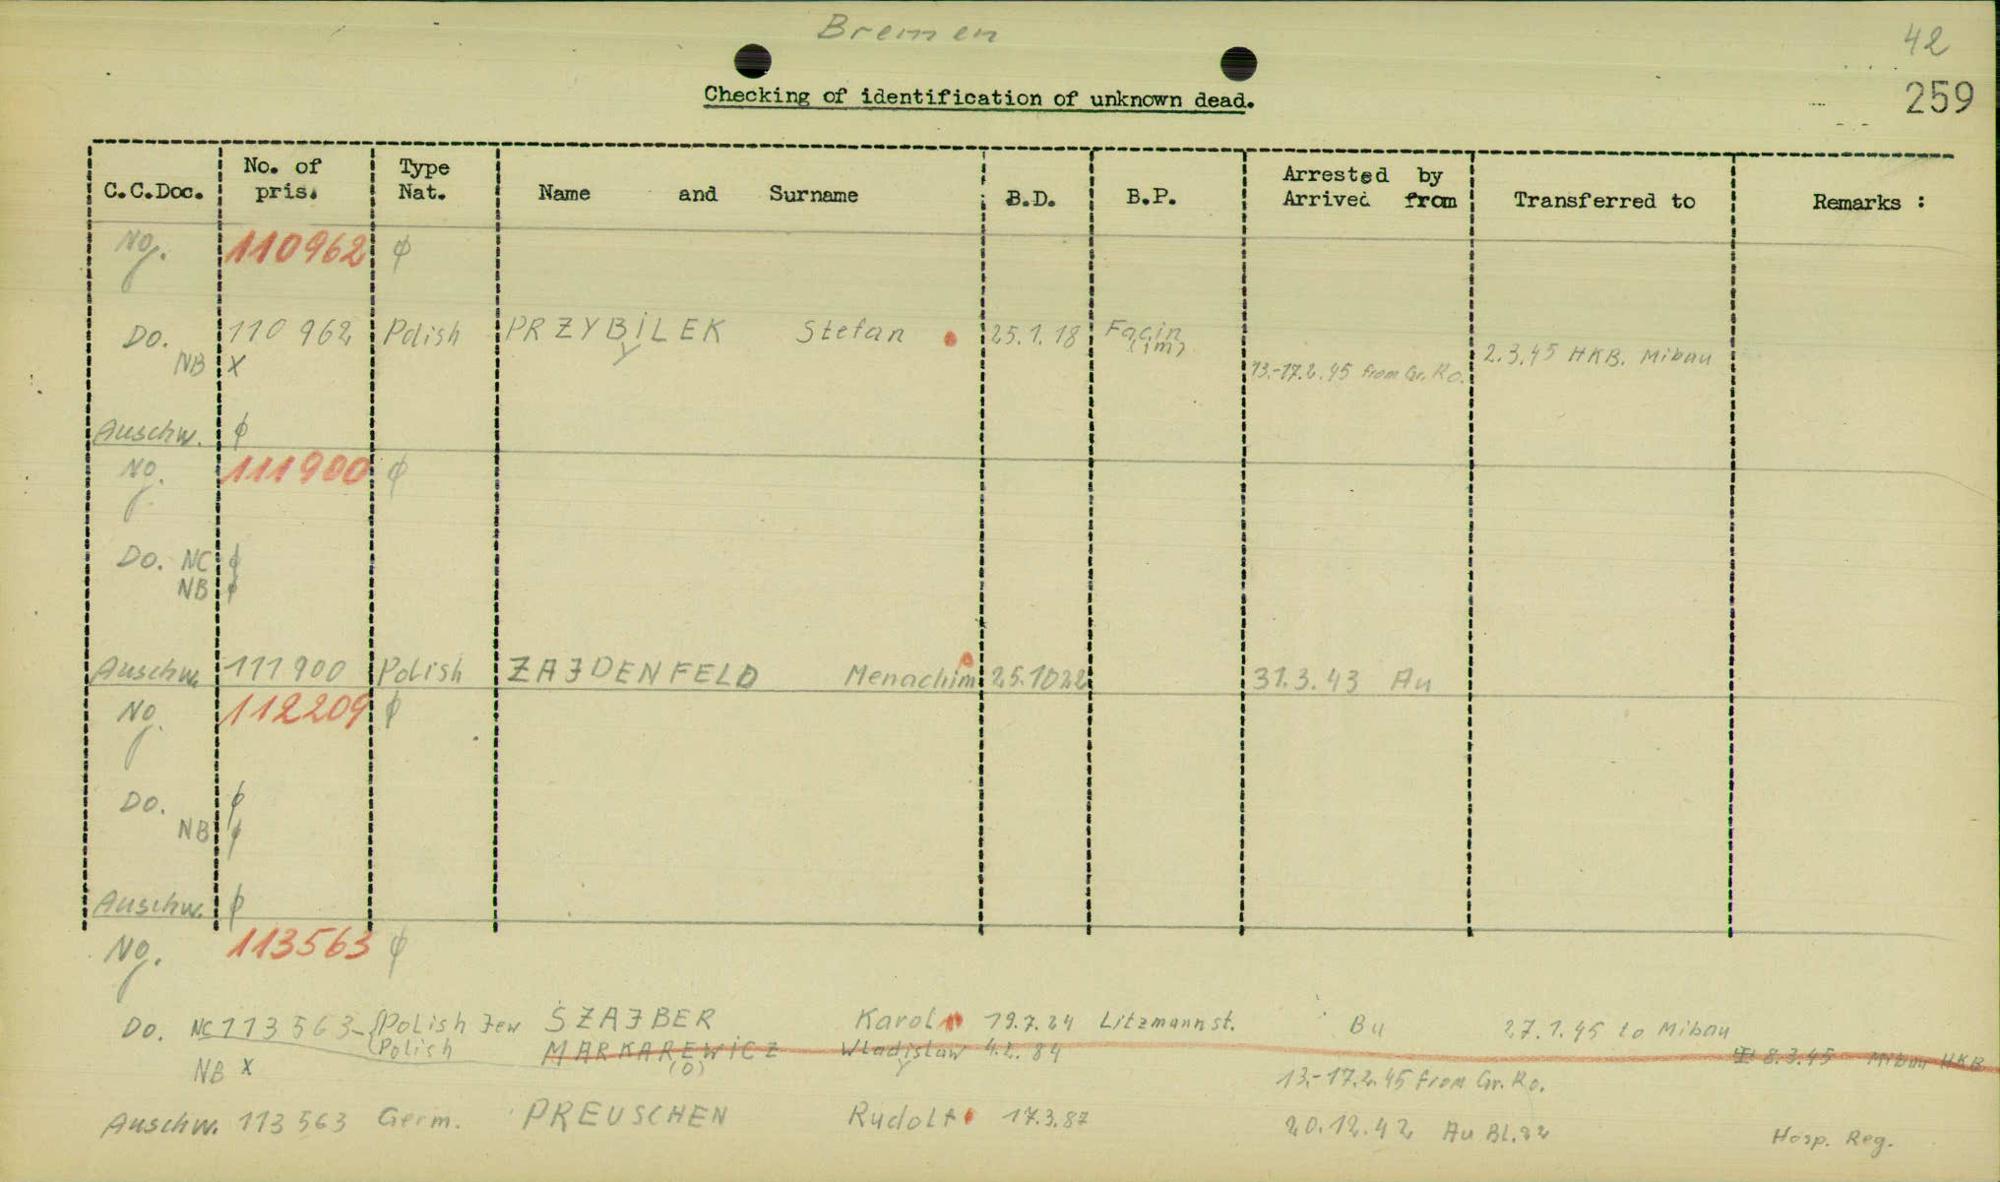 Bremen
42
259
Checking of identification of unknown dead.
C.C.Doc. No. of pris. Type Nat. Name and Surname B.D. B.P. Arrested by Arrived from Transferred to Remarks :
Ng. 110962 ϕ
Do. 110 962 Polish PRZYBILEK Stefan 25.1.18 Facin
y (im)
NB X 13.-17.2.45 from Gr. Ro. 2.3.45 HKB. Mibau
Auschw. ϕ
Ng. 111900 ϕ
Do. NC ϕ
NB ϕ
Auschw. 111900 Polish ZAJDENFELD Menachim 25.10.22 31.3.43 Au
Ng 112209 ϕ
Do. ϕ
NB ϕ
Auschw. ϕ
Ng. 113563 ϕ
Do. NC 113563 - Polish Jew SZAJBER Karol 19.7.24 Litzmannst. Bu 27.1.45 to Mibau
Polish MARKAREWICZ Wladislaw 4.2.84 8.3.45 Mibau HKB
(o) y
NB X 13.-17.2.45 from Gr. Ro.
Auschw. 113563 Germ. PREUSCHEN Rudolf 17.3.87 20.12.42 Au Bl.22 Hosp. Reg.